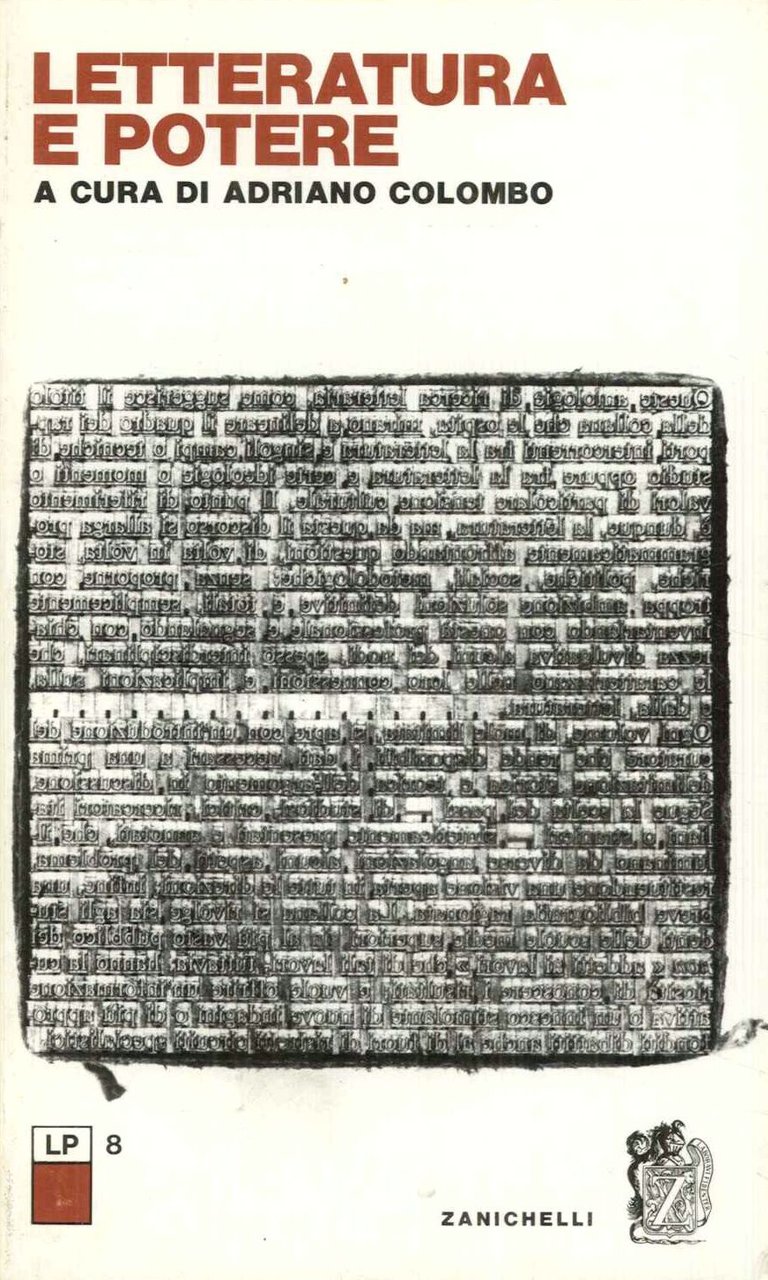 LETTERATURA
E POTERE
A CURA DI ADRIANO COLOMBO
Queste antologie di ricerca letteraria, come suggerisce il titolo
della collana che le ospita, mirano a delineare il quadro dei rap-
porti intercorrenti fra la letteratura e singoli campi o tecniche di
studio oppure fra la letteratura e certe ideologie o momenti o
valori di particolare tensione culturale. Il punto di riferimento
è dunque la letteratura, ma da questa il discorso si allarga pro-
grammaticamente affrontando questioni di volta in volta sto-
riche, politiche, sociali, metodologiche: senza proporre con
troppa ambizione soluzioni definitive e totali, semplicemente
inventariando con onestà professionale e segnalando con chia-
rezza divulgativa alcuni dei nodi, spesso interdisciplinari, che
le caratterizzano nelle loro connessioni e implicazioni sulla
e dalla letteratura.
Ogni volume, di mole limitata, si apre con un'introduzione del
curatore che rende disponibili i dati necessari a una prima
delimitazione storica e teorica dell'argomento in discussione.
Segue la scelta dei passi — di studiosi, critici, ricercatori ita-
liani o stranieri — sinteticamente presentati e annotati, che il-
luminano da diverse angolazioni alcuni aspetti del problema
restituendone una visione aperta in tutte le direzioni; infine, una
breve bibliografia ragionata. La collana si rivolge sia agli stu-
denti delle scuole medie superiori, sia al più vasto pubblico dei
non « addetti ai lavori » che di tali lavori, tuttavia, hanno la cu-
riosità di conoscere i risultati, e vuole offrire un'informazione
attiva o un innesco stimolante di nuove indagini o di più appro-
fonditi dibattiti anche al di fuori di ristretti circuiti specialistici.
LP 8
ZANICHELLI
Z